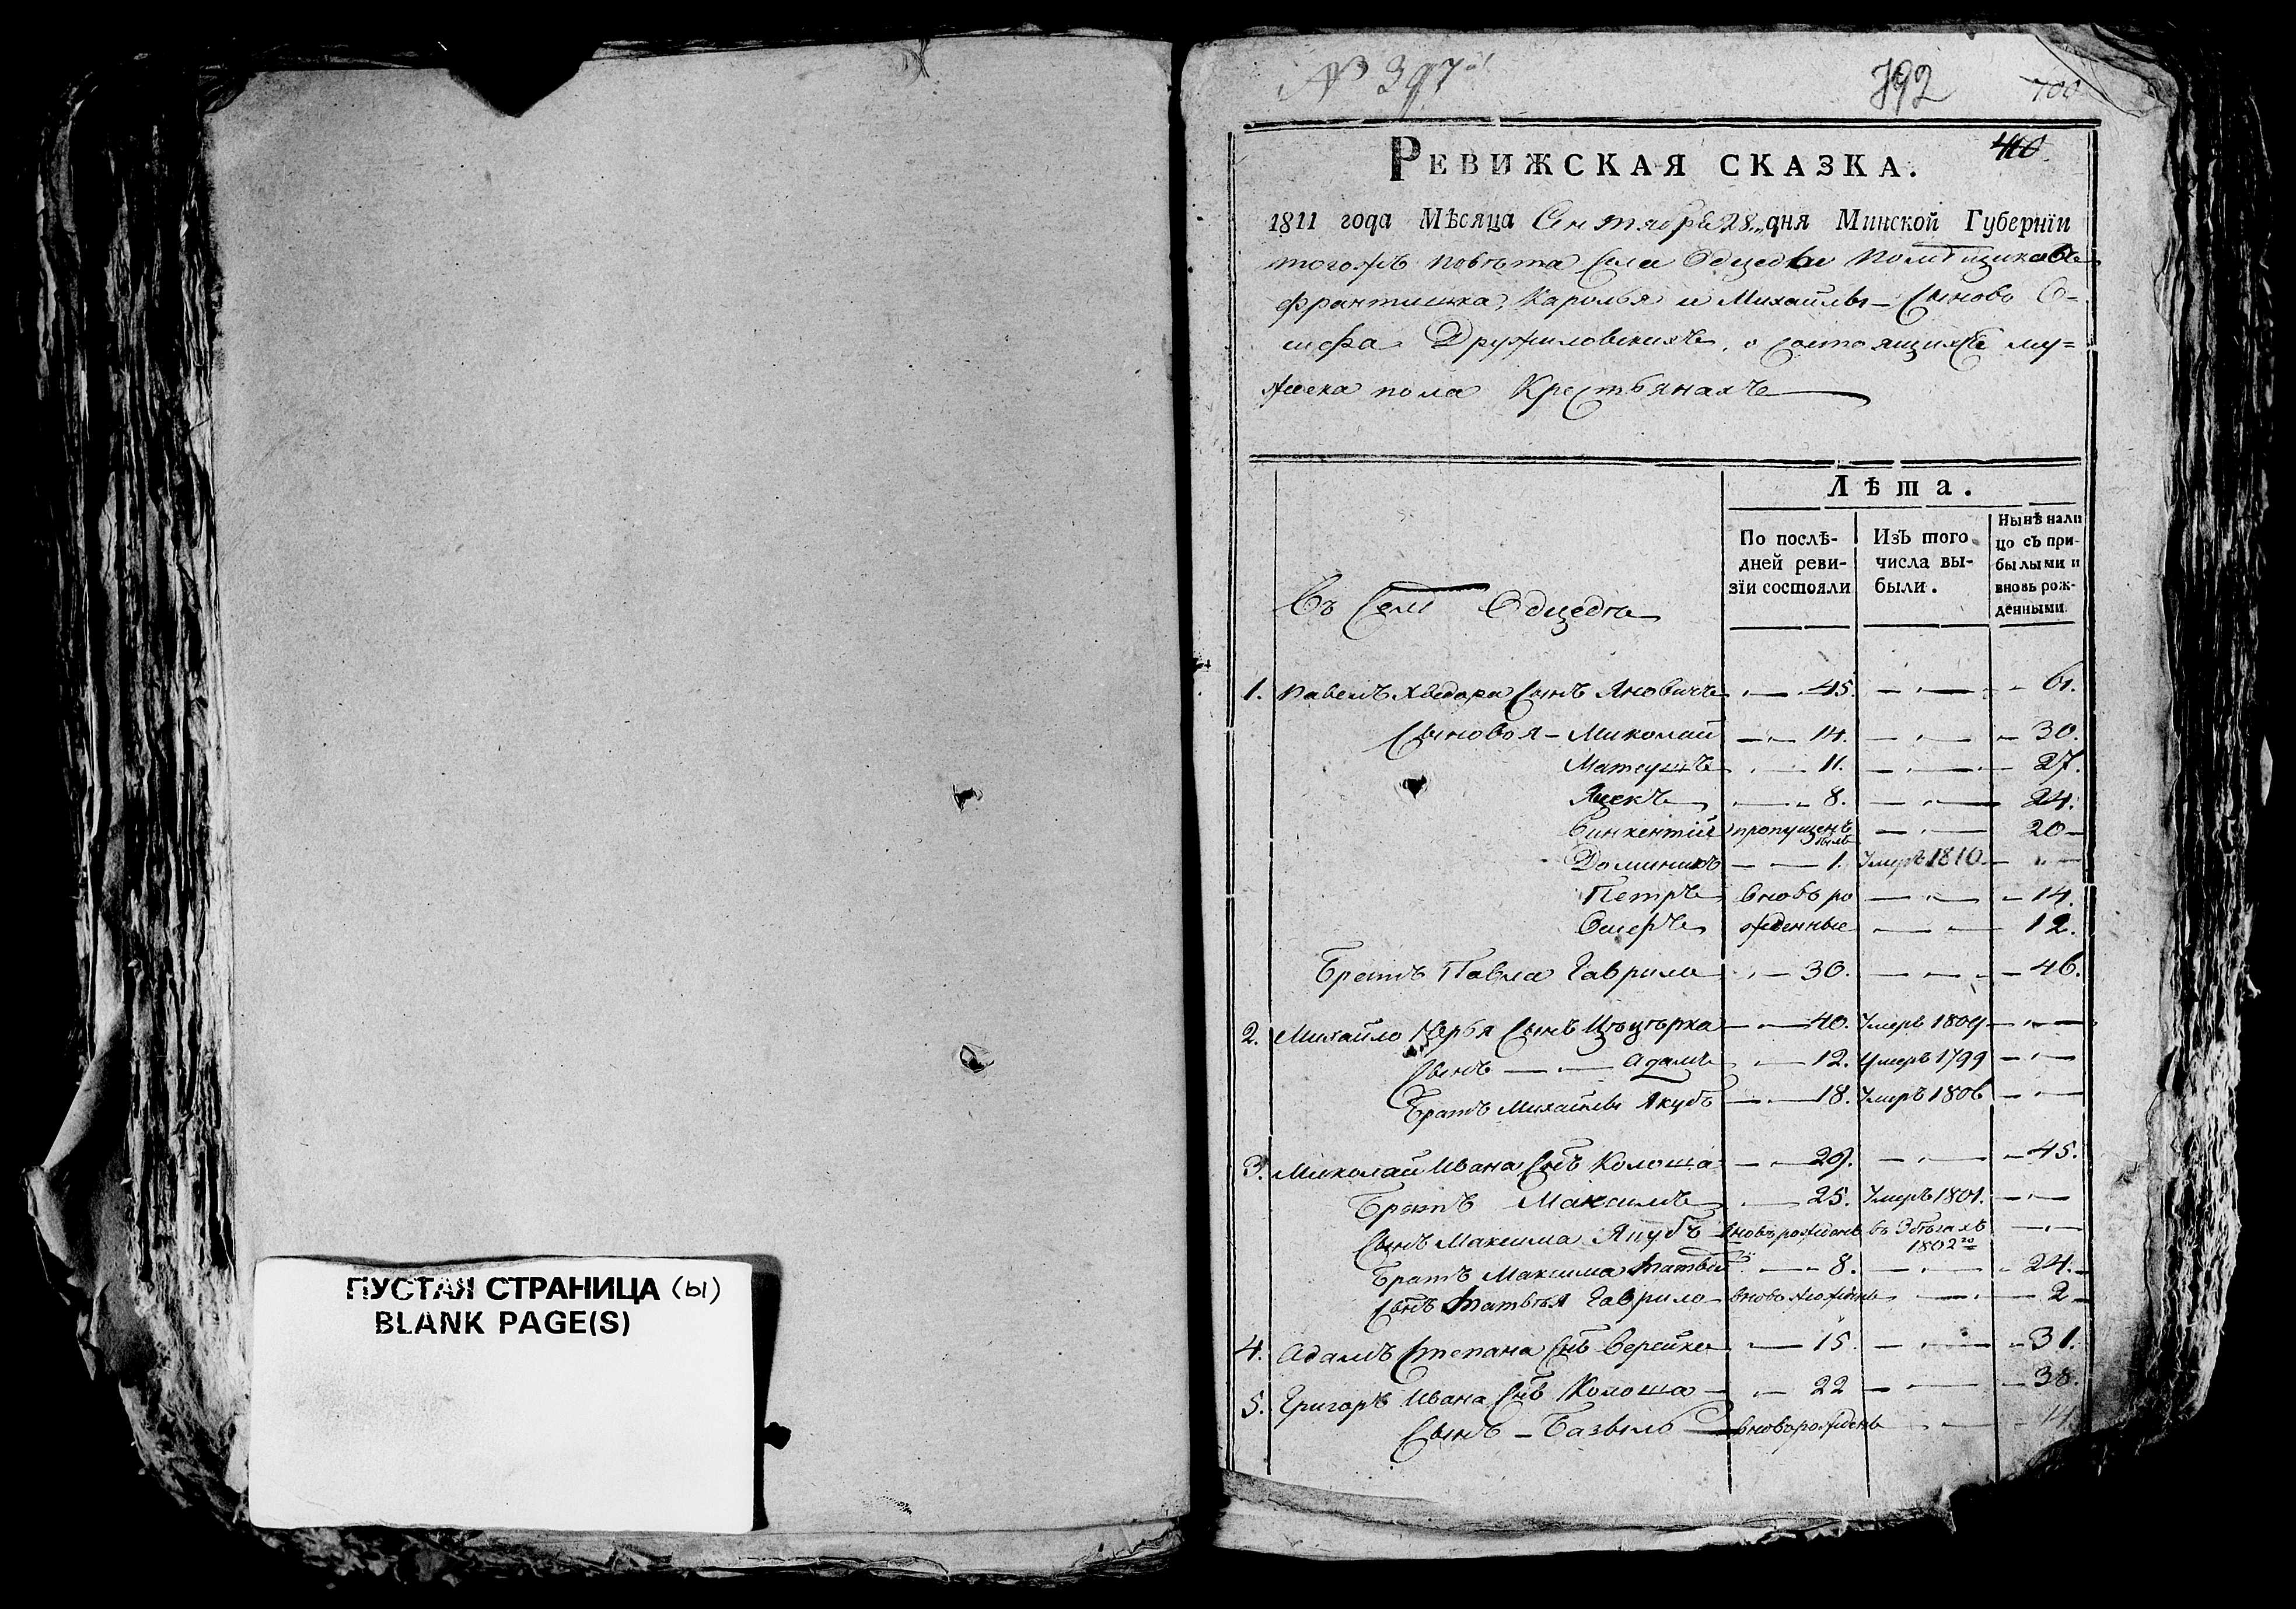 № 397
792
700
410
РЕВИЖСКАЯ СКАЗКА.
1811 года Мѣсяца Сентября 28 дня Минской Губернїи
тогожъ повѣта Села Одцеды помѣщиковъ
Франтишка, Кароля и Михайлы Сыновъ О-
сифа Дружиловскихъ, о состоящихъ му=
жеска пола Крестьянахъ
Лѣта.
По послѣ-
дней реви-
зїи состояли
ИзЪ того
числа вы-
были.
Нынѣ нали
цо съ при-
былыми и
вновь рож-
денными.
Въ Селѣ Одцеда
1. Павелъ Хведора Сынъ Яновичъ 45. 61.
Сыновья - Миколай 14. 30.
Матеушъ 11. 27.
Яцекъ 8. 24.
Винкентій пропущенъ былъ 20
Доминикъ 1. Умеръ 1810
Петръ вновь ро 14.
Осифъ жденные 12.
Братъ Павла Гаврила 30. 46.
2. Михайло Юрья Сынъ 40. Умеръ 1809
Сынъ Адамъ 12. Умеръ 1799
Братъ Михайлы Якубъ 18. Умеръ 1806
3. Миколай Ивана Снъ Колоша 29. 45.
Братъ Максимъ 25. Умеръ 1801.
Сынъ Максима Якубъ вновьрожденъ въ Збѣгахъ
1802го
Братъ Максима Матвѣй 8. 24.
Снъ Матвѣя Гаврило вновь рожденъ 2
4. Адамъ Степана Снъ Верейка 15. 31.
5. Григоръ Ивана Снъ Колоша 22 38.
Сынъ - Базыль вновьрожденъ 14
ПУСТАЯ СТРАНИЦА (ы)
BLANK PAGE(S)